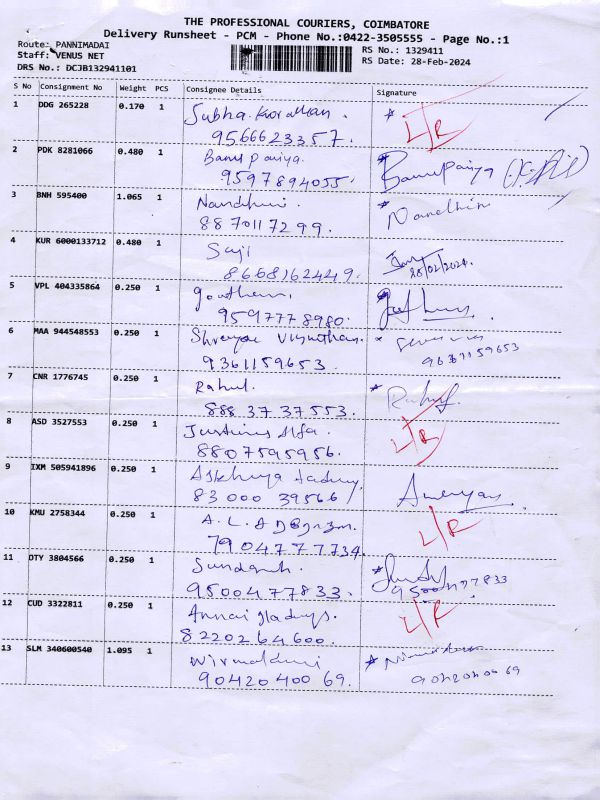 THE PROFESSIONAL COURIERS, COIMBATORE
Delivery Runsheet - PCM - Phone No.:0422-3505555 - Page No.:1
Route: PANNIMADAI
Staff: VENUS NET
DRS No.: DCJB132941101
RS No.: 1329411
RS Date: 28-Feb-2024
S No Consignment No Weight PCS Consignee Details Signature
1 DDG 265228 0.170 1 Subha. L/R
9566623357.
2 PDK 8281066 0.480 1 Banupariya. Banupariya
9597894055.
3 BNH 595400 1.065 1 Nandhini. Nandhini
8870117299.
4 KUR 6000133712 0.480 1 Saji
8668162449. 28/02/2024.
5 VPL 404335864 0.250 1 gouthami
9597778980.
6 MAA 944548553 0.250 1 Shreyae Viswnathan.
9361159653. 9361159653
7 CNR 1776745 0.250 1 Rahul. Rahul.
8883737553.
8 ASD 3527553 0.250 1 L/R
8807595956.
9 IXM 505941896 0.250 1
83000 39566
10 KMU 2758344 0.250 1 A. L. L/R
7904777734.
11 DTY 3804566 0.250 1
9500477833. 9500477833
12 CUD 3322811 0.250 1 Annai gladys. L/R
8220264600.
13 SLM 340600540 1.095 1 Nirmal
90420400 69. 9042040069